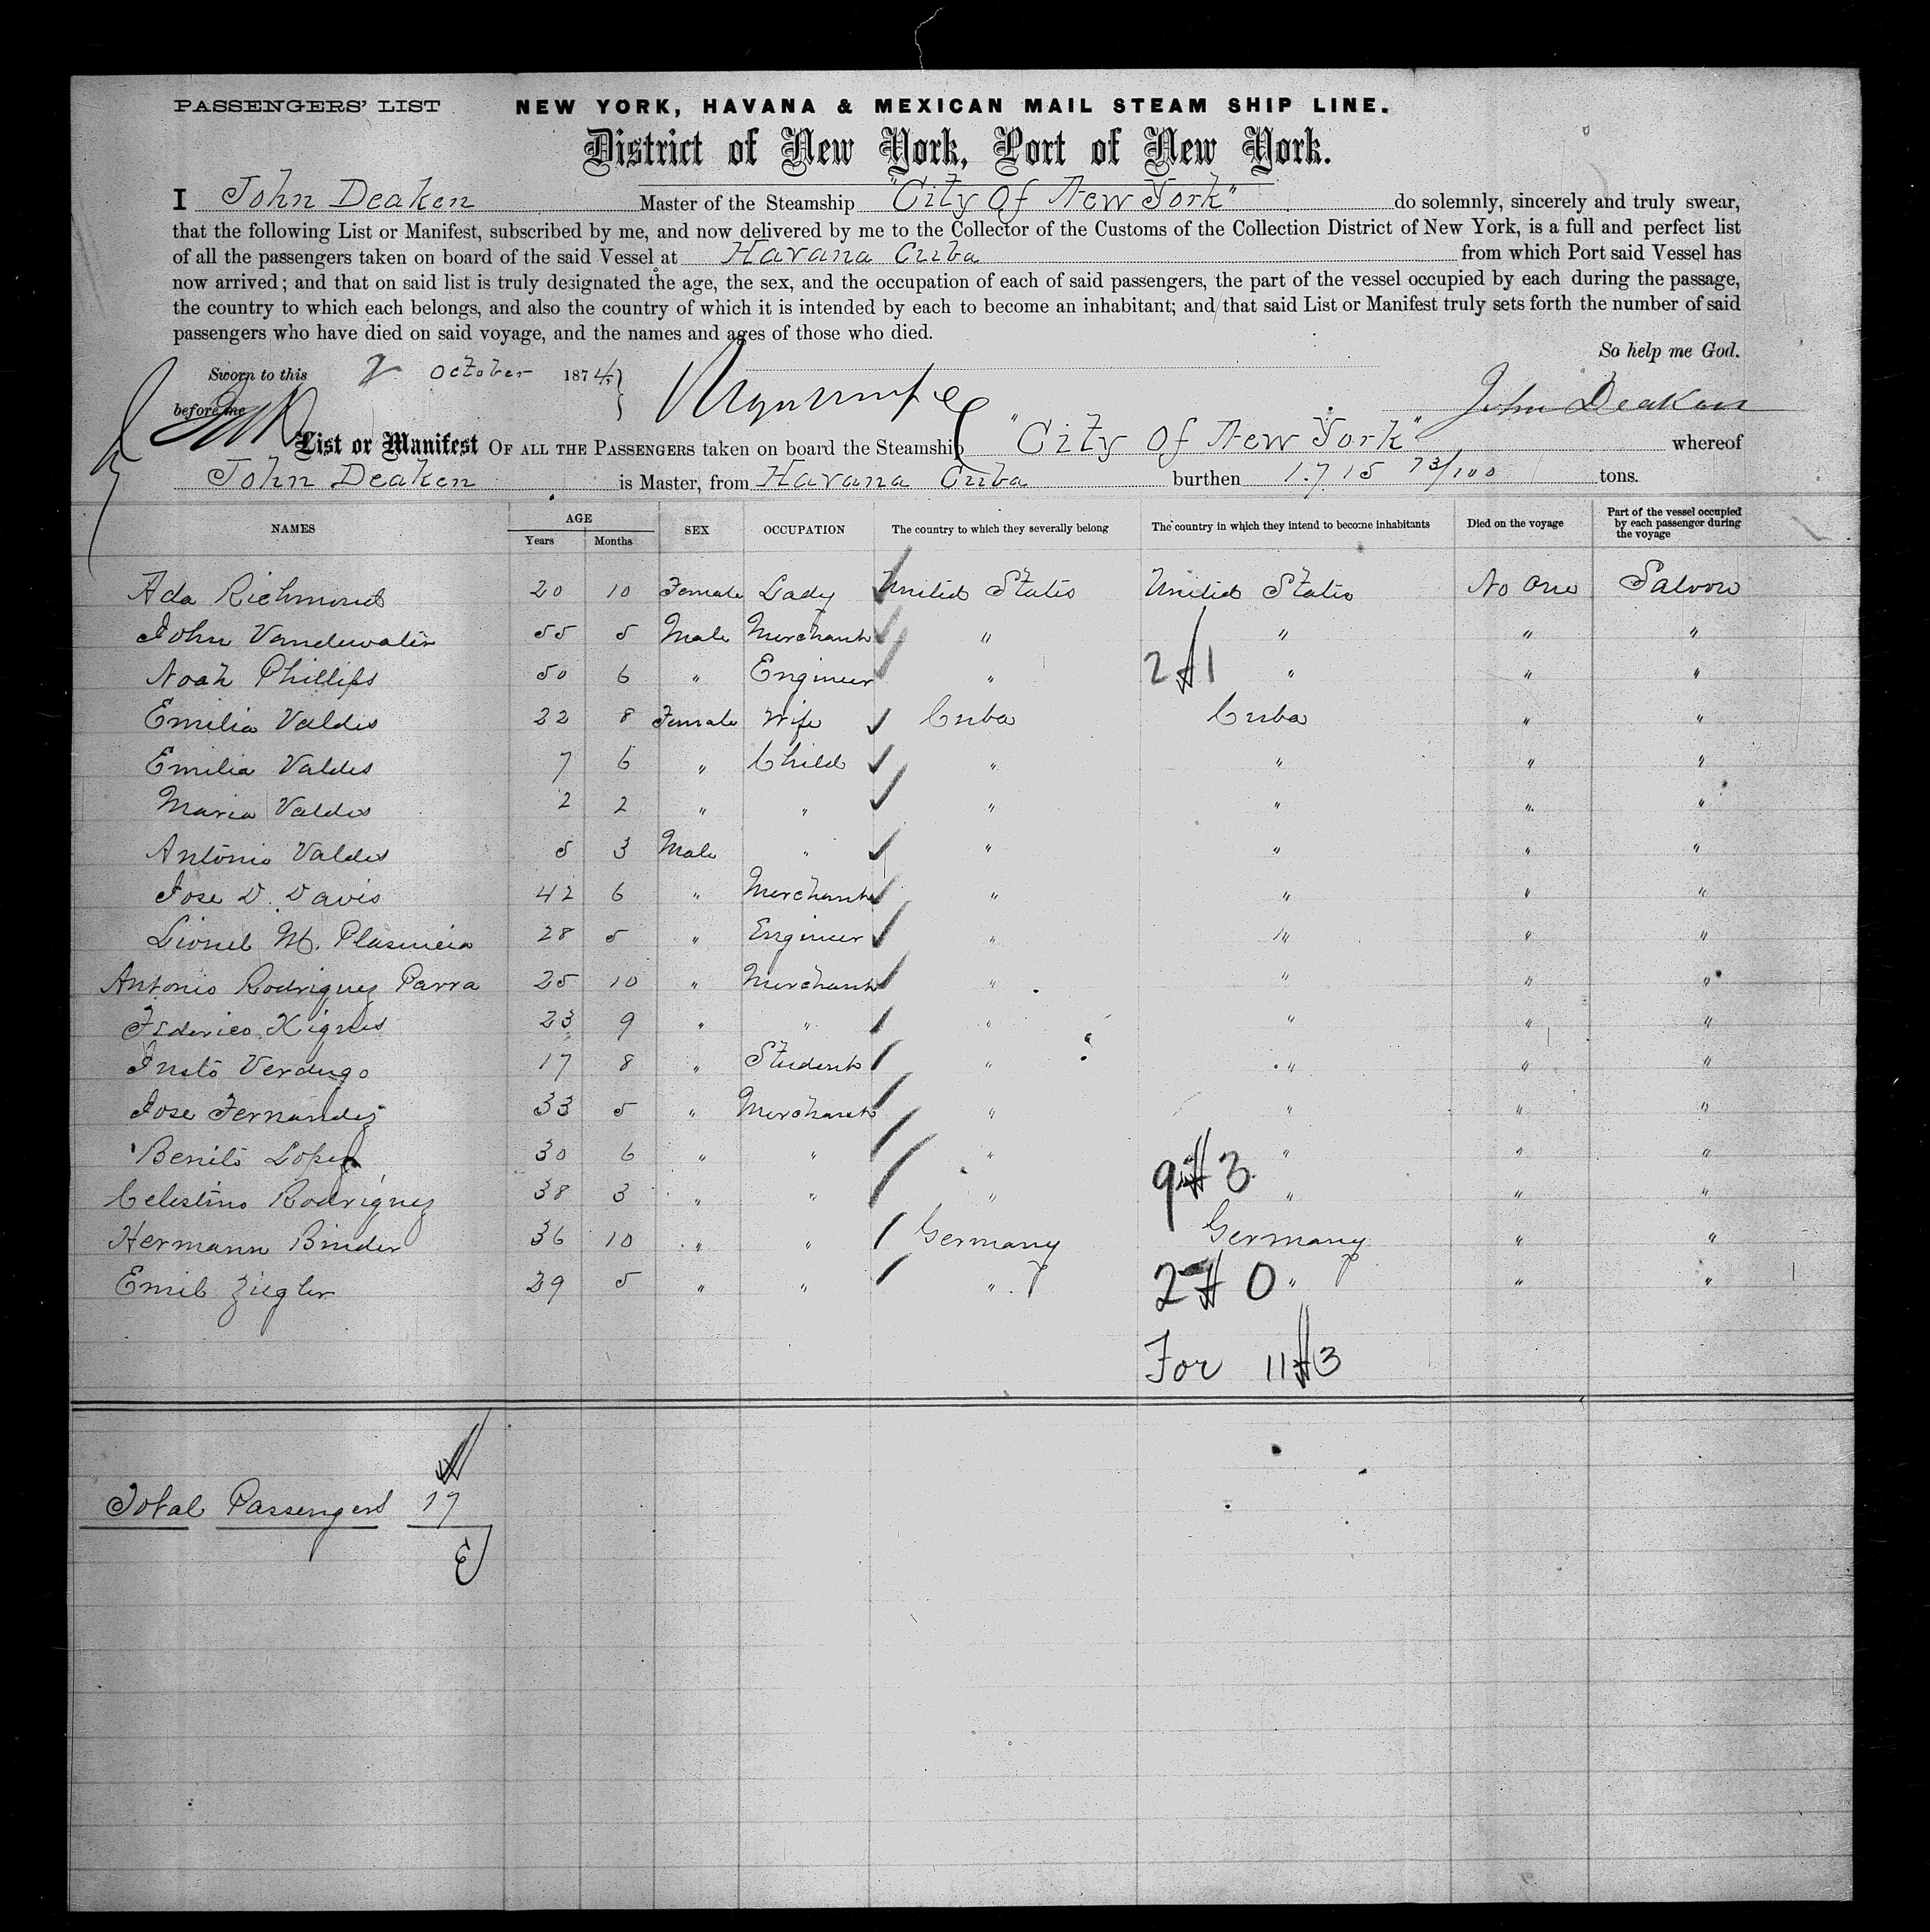 PASSENGERS' LIST NEW YORK, HAVANA & MEXICAN MAIL STEAM SHIP LINE.
District of New York, Port of New York.
I John Deaken Master of the Steamship "City of New York" do solemnly, sincerely and truly swear,
that the following List or Manifest, subscribed by me, and now delivered by me to the Collector of the Customs of the Collection District of New York, is a full and perfect list
of all the passengers taken on board of the said Vessel at Havana Cuba from which Port said Vessel has
now arrived; and that on said list is truly designated the age, the sex, and the occupation of each of said passengers, the part of the vessel occupied by each during the passage,
the country to which each belongs, and also the country of which it is intended by each to become an inhabitant; and that said List or Manifest truly sets forth the number of said
passengers who have died on said voyage, and the names and ages of those who died.
So help me God.
Sworn to this October 1874
before me John Deaken
List or Manifest OF ALL THE PASSENGERS taken on board the Steamship "City of New York" whereof
John Deaken is Master, from Havana Cuba burthen 1.715 73/100 tons.
NAMES AGE Years Months SEX OCCUPATION The country to which they severally belong The country in which they intend to become inhabitants Died on the voyage Part of the vessel occupied by each passenger during the voyage
Ada Richmond 20 10 Female Lady United States United States No one Saloon
John Vandewater 55 5 Male Merchant " " " "
Noah Phillips 50 6 " Engineer " 2 1 " " "
Emilia Valdes 22 8 Female Wife Cuba Cuba " "
Emilia Valdes 7 6 " Child " " " "
Maria Valdes 2 2 " " " " " "
Antonio Valdes 5 3 Male " " " " "
Jose D. Davis 42 6 " Merchant " " " "
Lionel M. Plasencia 28 5 " Engineer " " " "
Antonio Rodriguez Parra 25 10 " Merchant " " " "
Federico 23 9 " " " " " "
Justo Verdugo 17 8 " Student " " " "
Jose Fernandez 33 5 " Merchant " " " "
Benito Lopez 30 6 " " " " " "
Celestino Rodriguez 38 3 " " " 9 3 " " "
Hermann Binder 36 10 " " Germany Germany " "
Emil Ziegler 29 5 " " " 2 0 " " "
For 11 3
Total Passengers 17